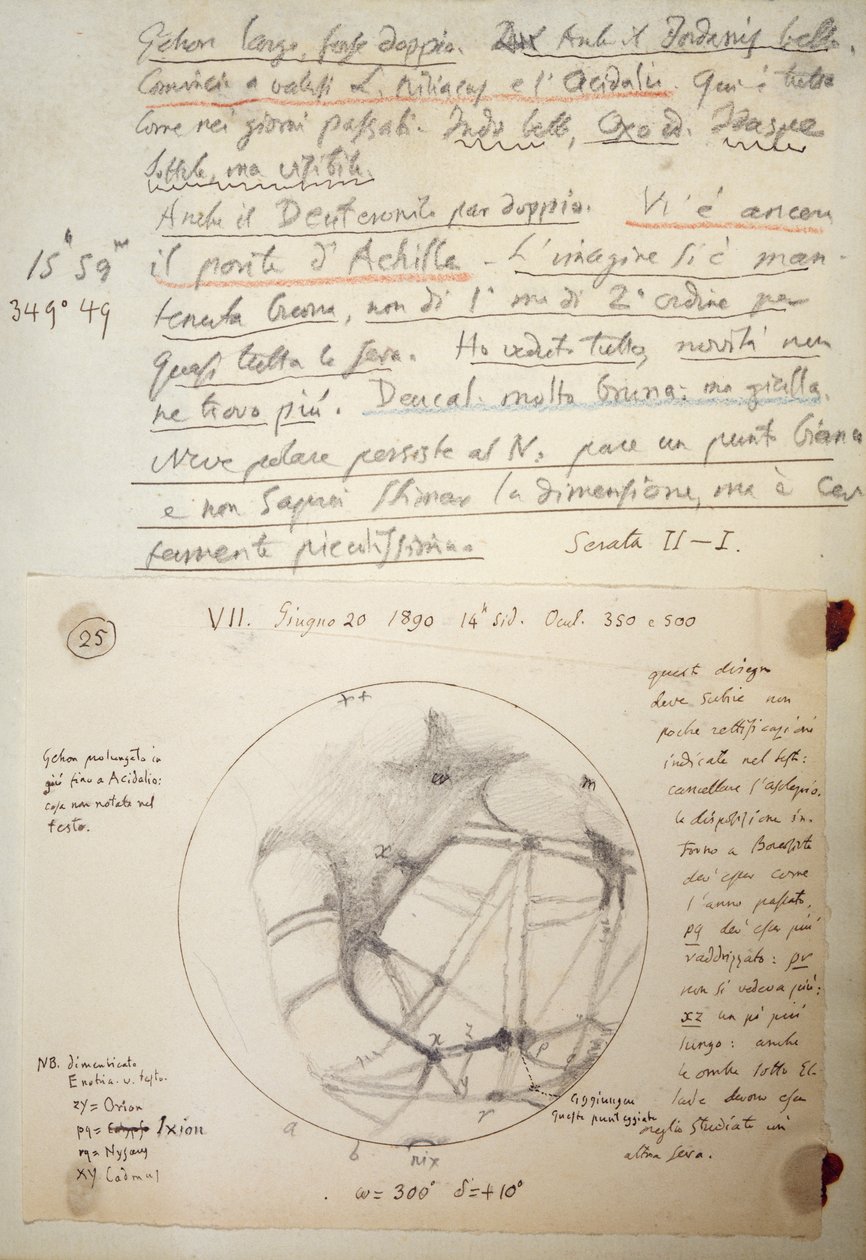 Gehon largo, forse doppio. Anche il Jordanis bello.
Comincia a vedersi L. Niliacus e l'Acidalio. Qui è tutto
come nei giorni passati. Indo bello, Oxo id. Idaspe
sottile, ma visibile.
Anche il Deuteronilo par doppio. Vi è ancora
15h 59m
349° 49
il ponte d'Achille - L'imagine si è man-
tenuta buona, non di 1° ma di 2° ordine per
quasi tutta la sera. Ho veduto tutto, novità non
ne trovo più. Deucal. molto bruna: ma gialla.
Neve polare persiste al N: pare un punto bianco
e non saprei stimar la dimensione, ma è cer
tamente piccolissima.
Serata II-I.
25
VII. Giugno 20 1890 14h sid. Ocul. 350 e 500
Gehon prolungato in
giù fino a Acidalio:
cosa non notata nel
testo.
questo disegno
deve subire non
poche rettificazioni
indicate nel testo:
cancellare l'
la disposizione in-
torno a
dev'esser come
l'anno passato,
pq dev'esser più
raddrizzato: pr
non si vedeva più:
xz un pò più
lungo: anche
le ombre sotto El-
lade devono esser
meglio studiate un'
altra sera.
++
ω
m
x
x
z
p
q
n
y
r
a
b
nix
aggiungere
queste punteggiate
NB. dimenticato
Enotria. v. testo.
zy = Orion
pq = Ixion
rq = Nysaus
XY Cadmus
ω = 300° δ = +10°